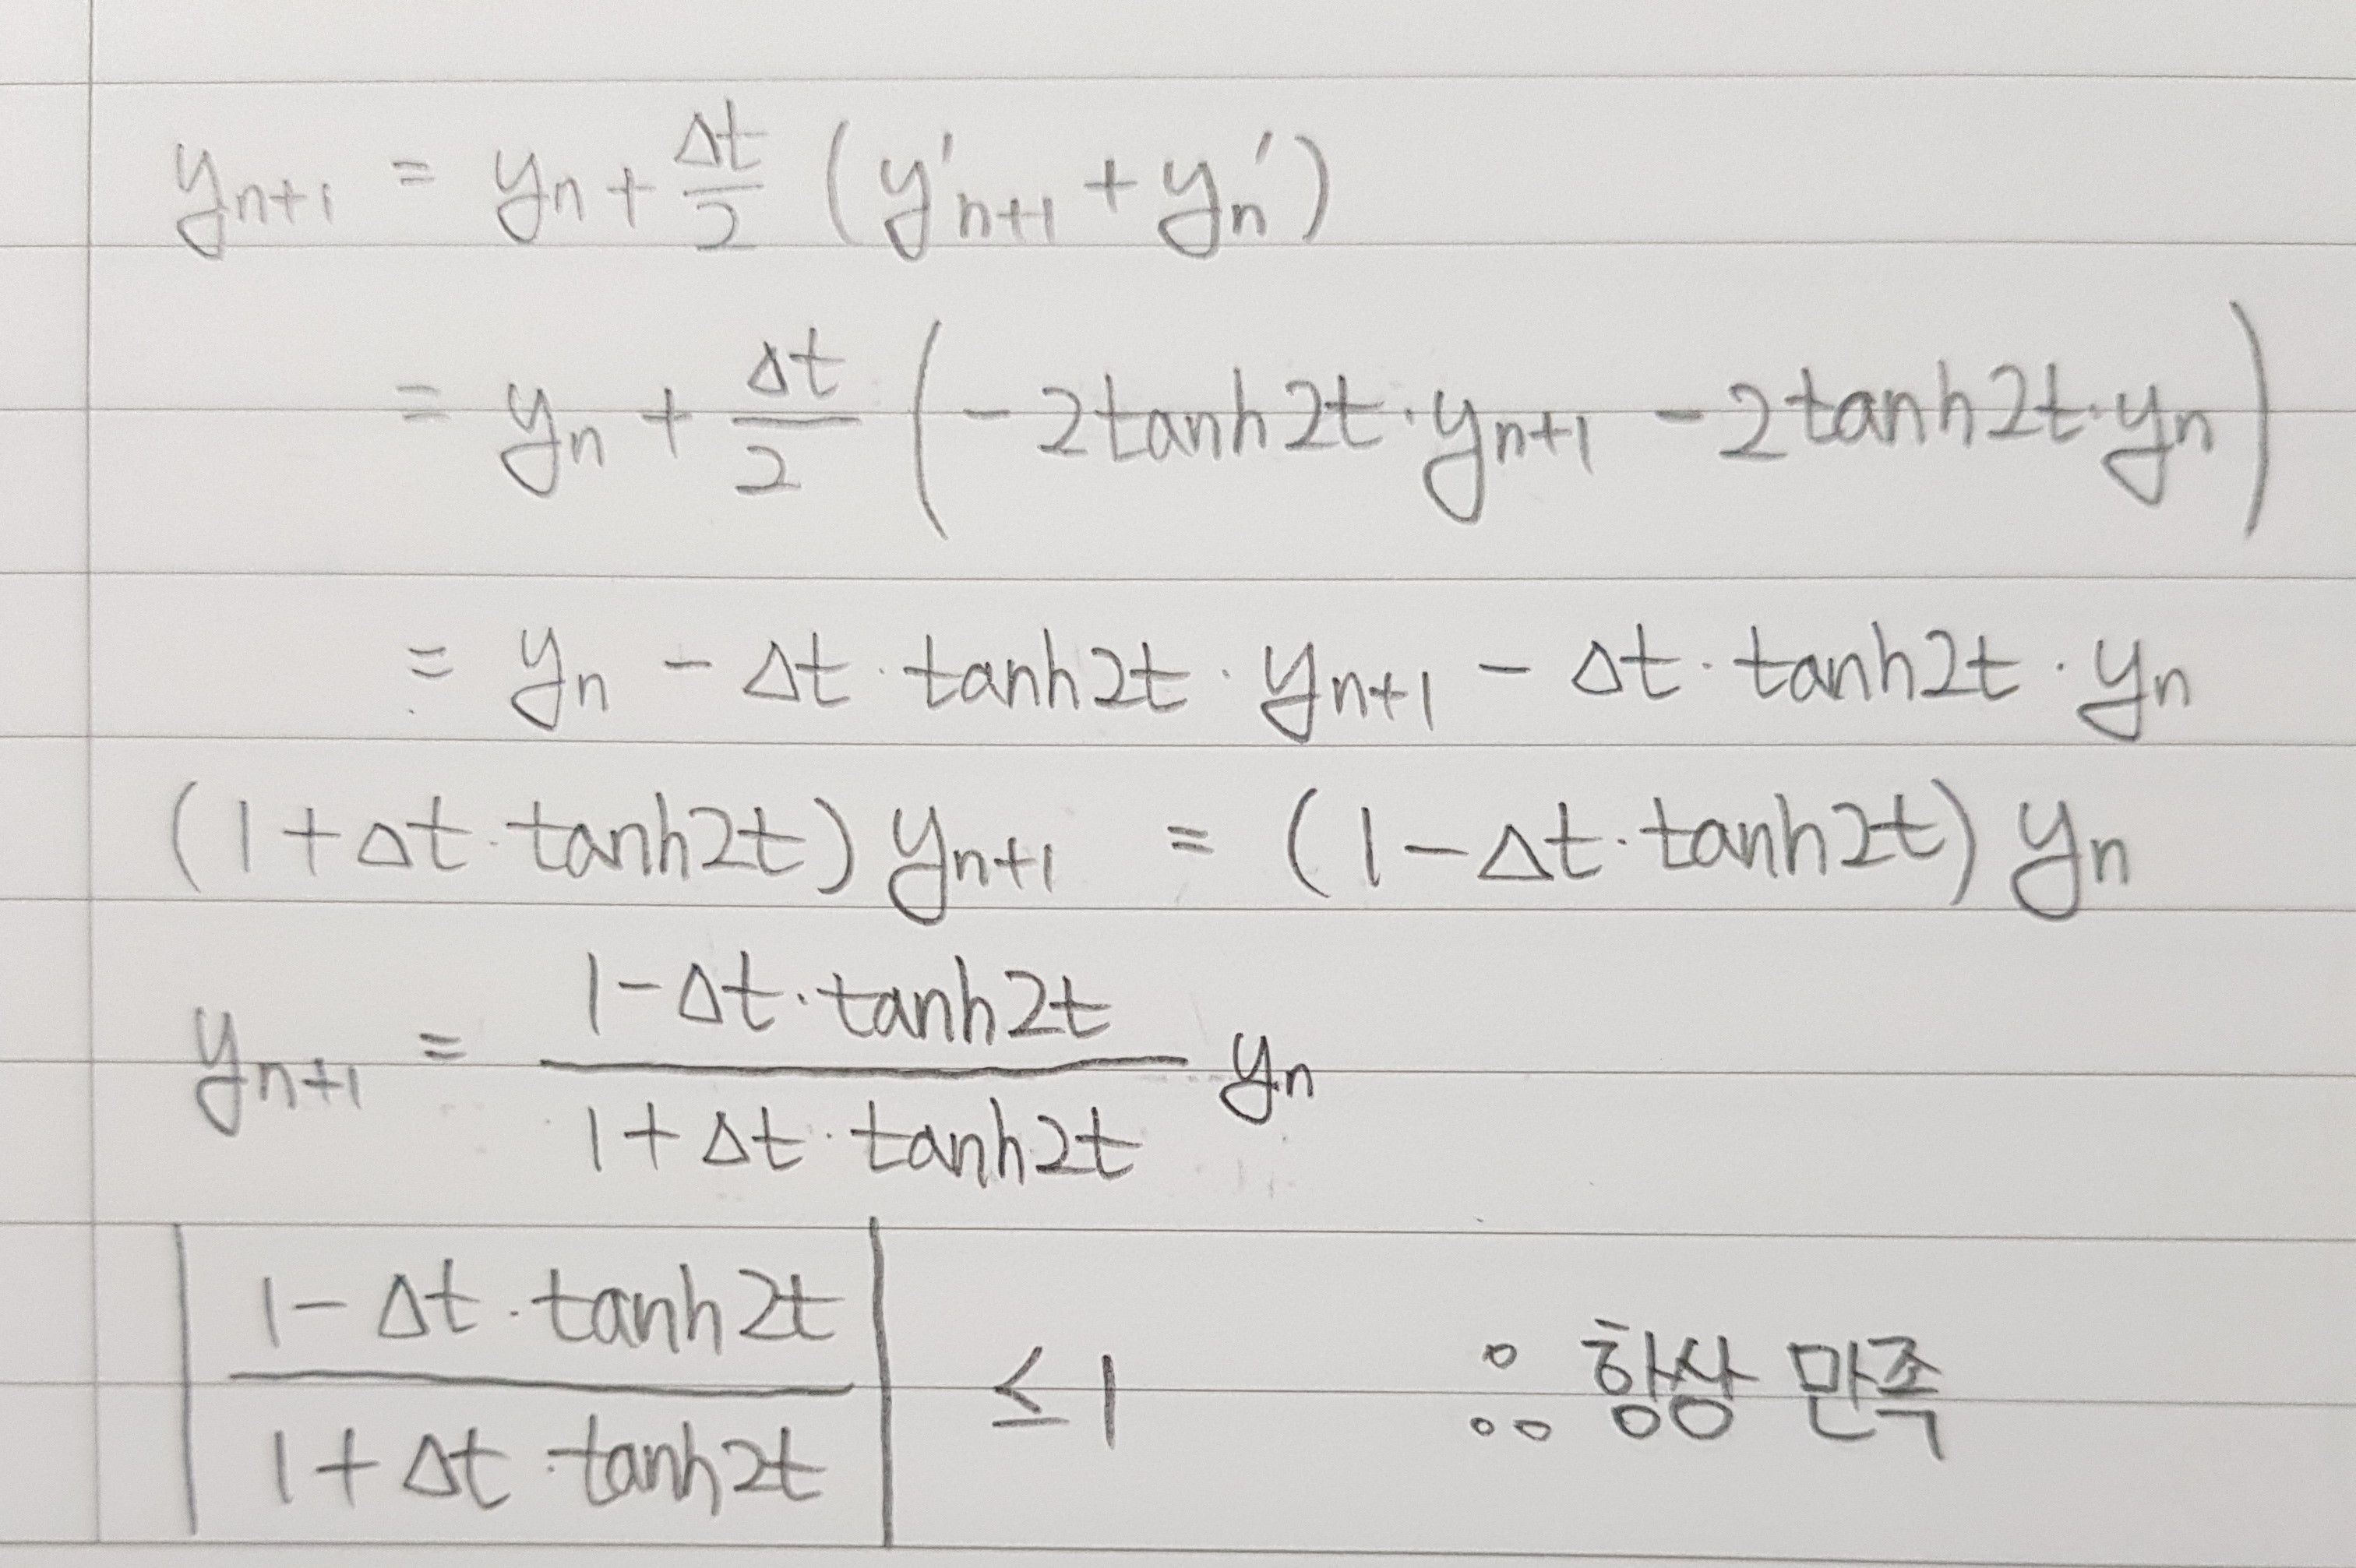 yₙ₊₁ = yₙ + Δt/2 (y'ₙ₊₁ + yₙ')
= yₙ + Δt/2 (-2tanh2t·yₙ₊₁ - 2tanh2t·yₙ)
= yₙ - Δt·tanh2t·yₙ₊₁ - Δt·tanh2t·yₙ
(1+Δt·tanh2t)yₙ₊₁ = (1-Δt·tanh2t)yₙ
yₙ₊₁ = (1-Δt·tanh2t)/(1+Δt·tanh2t) yₙ
|(1-Δt·tanh2t)/(1+Δt·tanh2t)| ≤ 1 ∴ 항상 만족